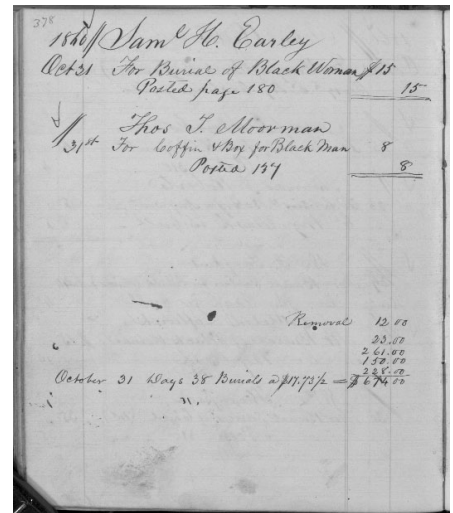 378
1860 // Saml H. Earley
Oct 31 For Burial of Black Woman $15
Posted page 180 15
// Thos T. Moorman
31st For Coffin & Box for Black Man 8
Posted 157 8
Removal 12.00
23.00
261.00
150.00
228.00
October 31 Days 38 Burials a $17.73½ = $674.00